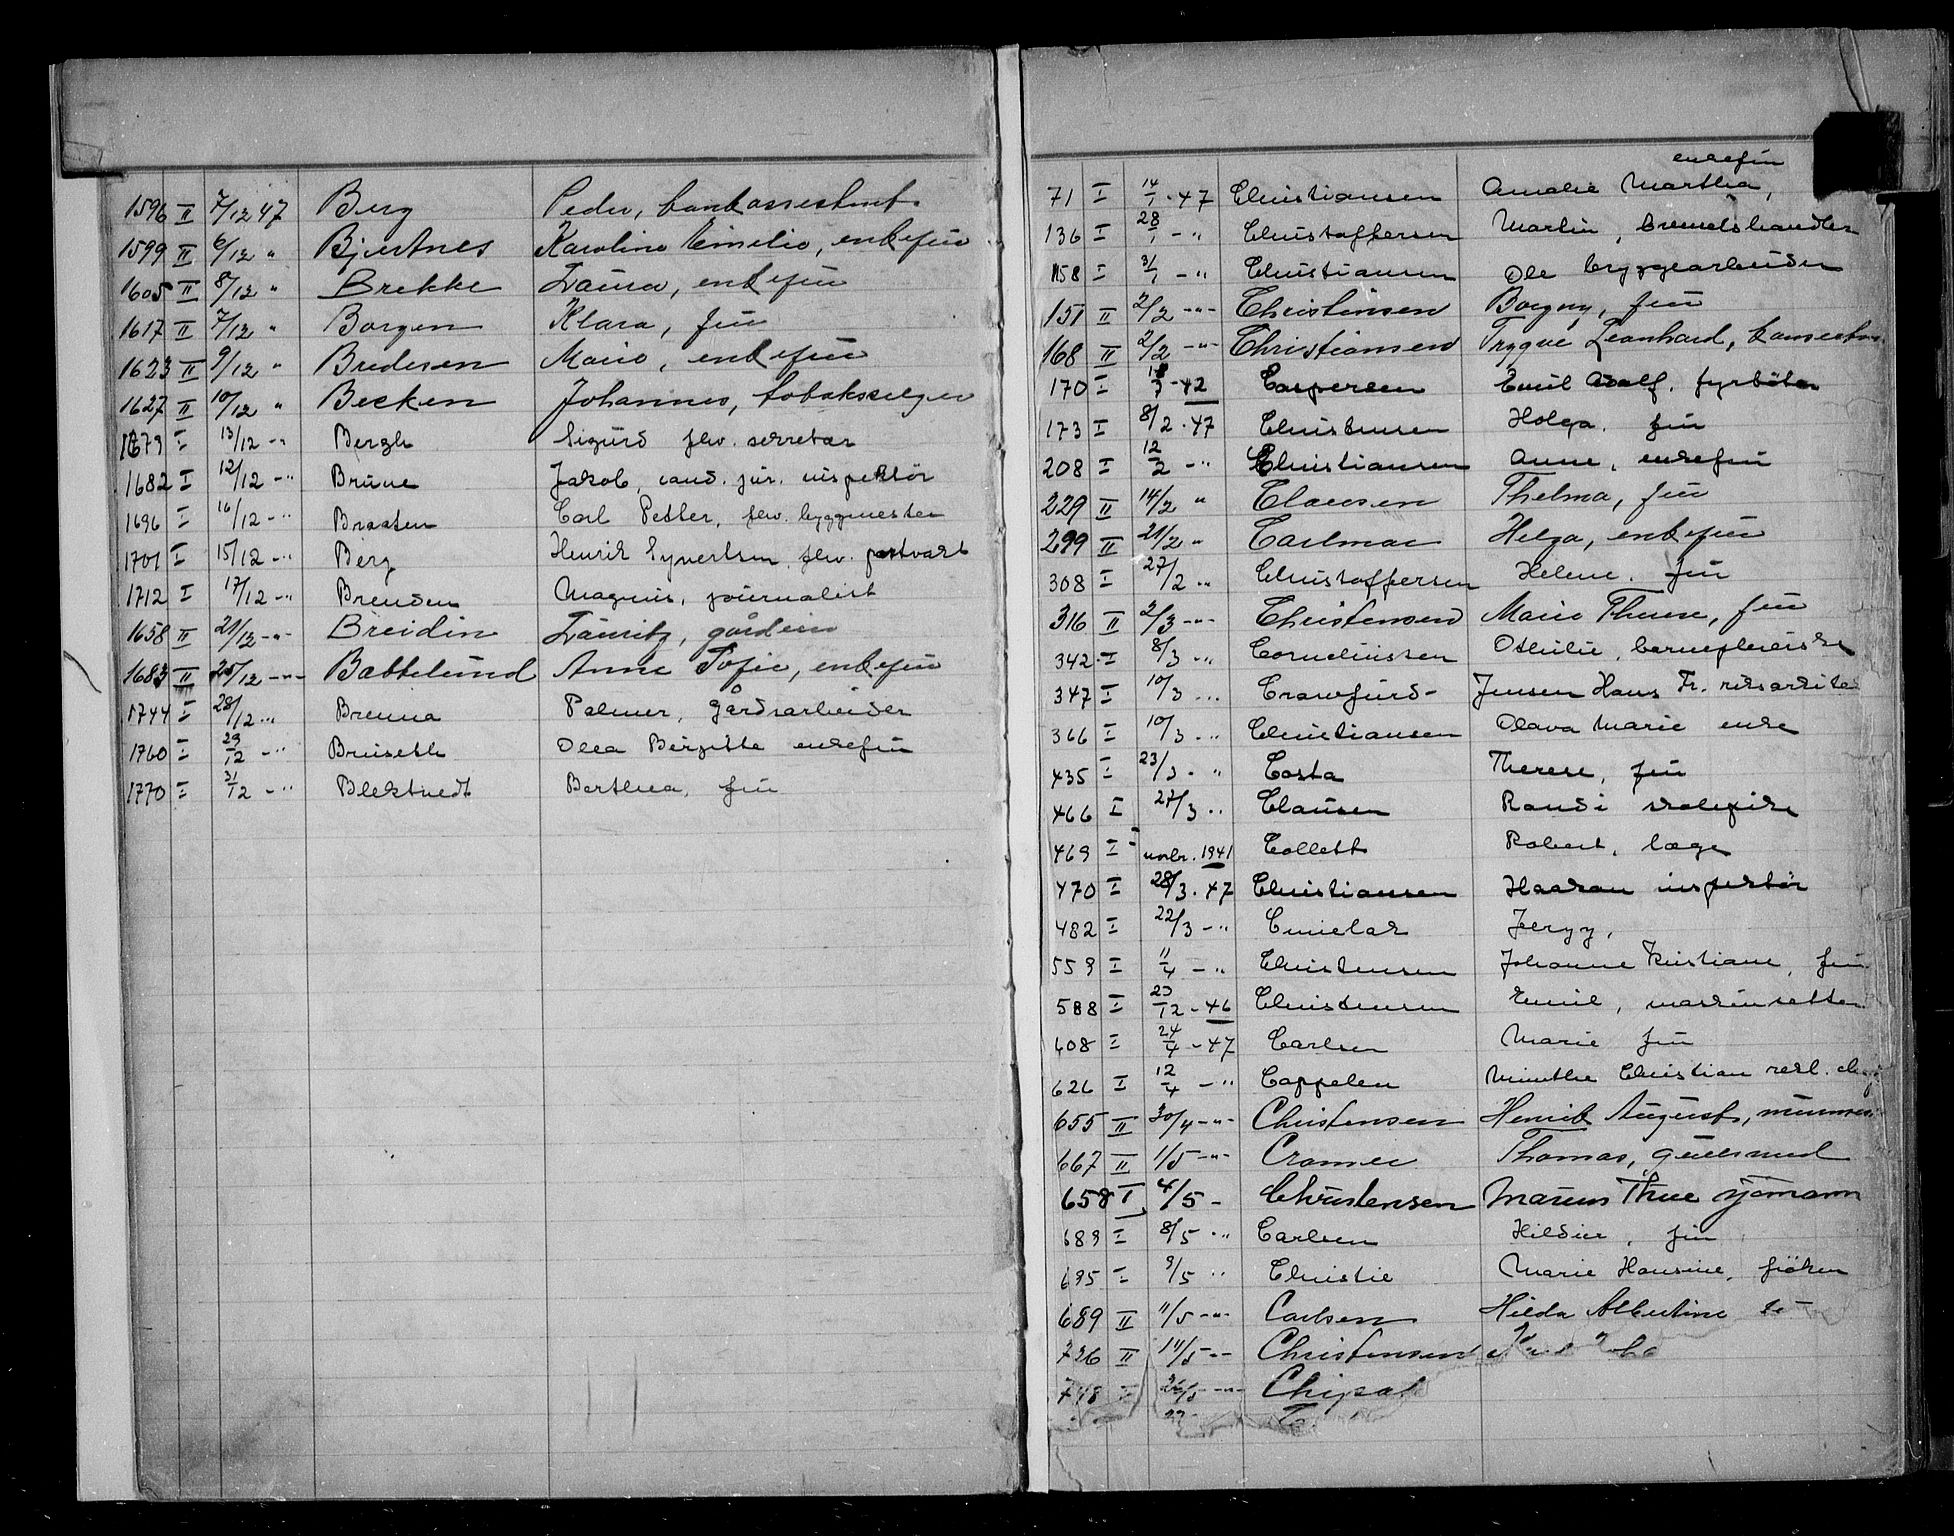 1596 II 7/12 47 Berg Peder, bankassistent.
1599 II 6/12 " Bjertnes Karoline Emelie, enkefru
1605 II 8/12 " Brekke Laura, enkefru
1617 II 7/12 " Borgen Klara, fru
1623 II 9/12 " Bredesen Marie, enkefru
1627 II 10/12 " Becken Johannes, tobaksselger
1673 I 13/12 -" Bergh Sigurd fhv. sekretær
1682 I 12/12 -" Brune Jakob, cand. jur. inspektör
1696 I 16/12 -" Braaten Carl Petter, fhv. byggmester
1701 I 15/12 -" Berg Henrik Syvertsen, fhv. portvakt
1712 I 17/12 -" Brenden Magnus, journalist
1658 II 21/12 -"- Breidin Lauritz,
1683 II 25/12 -"- Battelund Anne Sofie, enkefru
1744 I 28/12 -" Brenna Palmer, gårdsarbeider
1760 I 29/12 -" Bruseth Olea Birgitte enkefru
1770 I 31/12 -" Blekstvedt Berthea, fru
enkefru
71 I 14/1 - 47 Christiansen Amalie Marthea,
136 I 28/1 -" Christoffersen Martin, brendshandler
158 I 31/1 -" Christiansen Ole bryggearbeider
151 II 2/2 -"- Christensen Borgny, fru
168 II 2/2 -"- Christiansen Trygve Leonhard,
170 I - 42 Caspersen Emil Adolf, fyrböter
173 I 8/2 - 47 Christensen Helga, fru
208 I 12/2 -" Christiansen Anne, enkefru
229 II 14/2 " Clausen Thelma, fru
299 II 21/2 " Carlmar Helga, enkefru
308 I 27/2 " Christoffersen Helene, fru
316 II 2/3 -"- Christensen Marie Thrine, fru
342 I 8/3 -" Corneliussen Othilie, barnepleierske
347 I 10/3 -" Crawfurd- Jensen Hans Fr. riksarkitekt
366 I 10/3 -" Christiansen Olava Marie enke
435 I 23/3 -" Costa Therese, fru
466 I 27/3 " Clausen Randi skolepike
469 I novbr. 1941 Collett Robert, læge
470 I 28/3 - 47 Christiansen Haakon inspektör
482 I 22/3 -" Cmielak Jerzy,
559 I 11/4 -" Christensen Johanne Kristiane, fru
588 I 23/12 - 46 Christensen Emil, maskinsetter
608 I 24/4 - 47 Carlsen Marie fru
626 I 12/4 -" Cappelen Munthe Christian
655 II 30/4 -"- Christensen Henrik August,
667 II 1/5 -"- Cramer Thomas, gullsmed
658 I 4/5 - Christensen Marius Thue sjömann
689 I 8/5 -" Carlsen Hildur, fru
695 I 9/5 " Christie Marie Hansine, fröken
689 II 11/5 -"- Carlsen Hilda Albertine
736 II 14/5 -"- Christensen
748 I 26/5 -"-